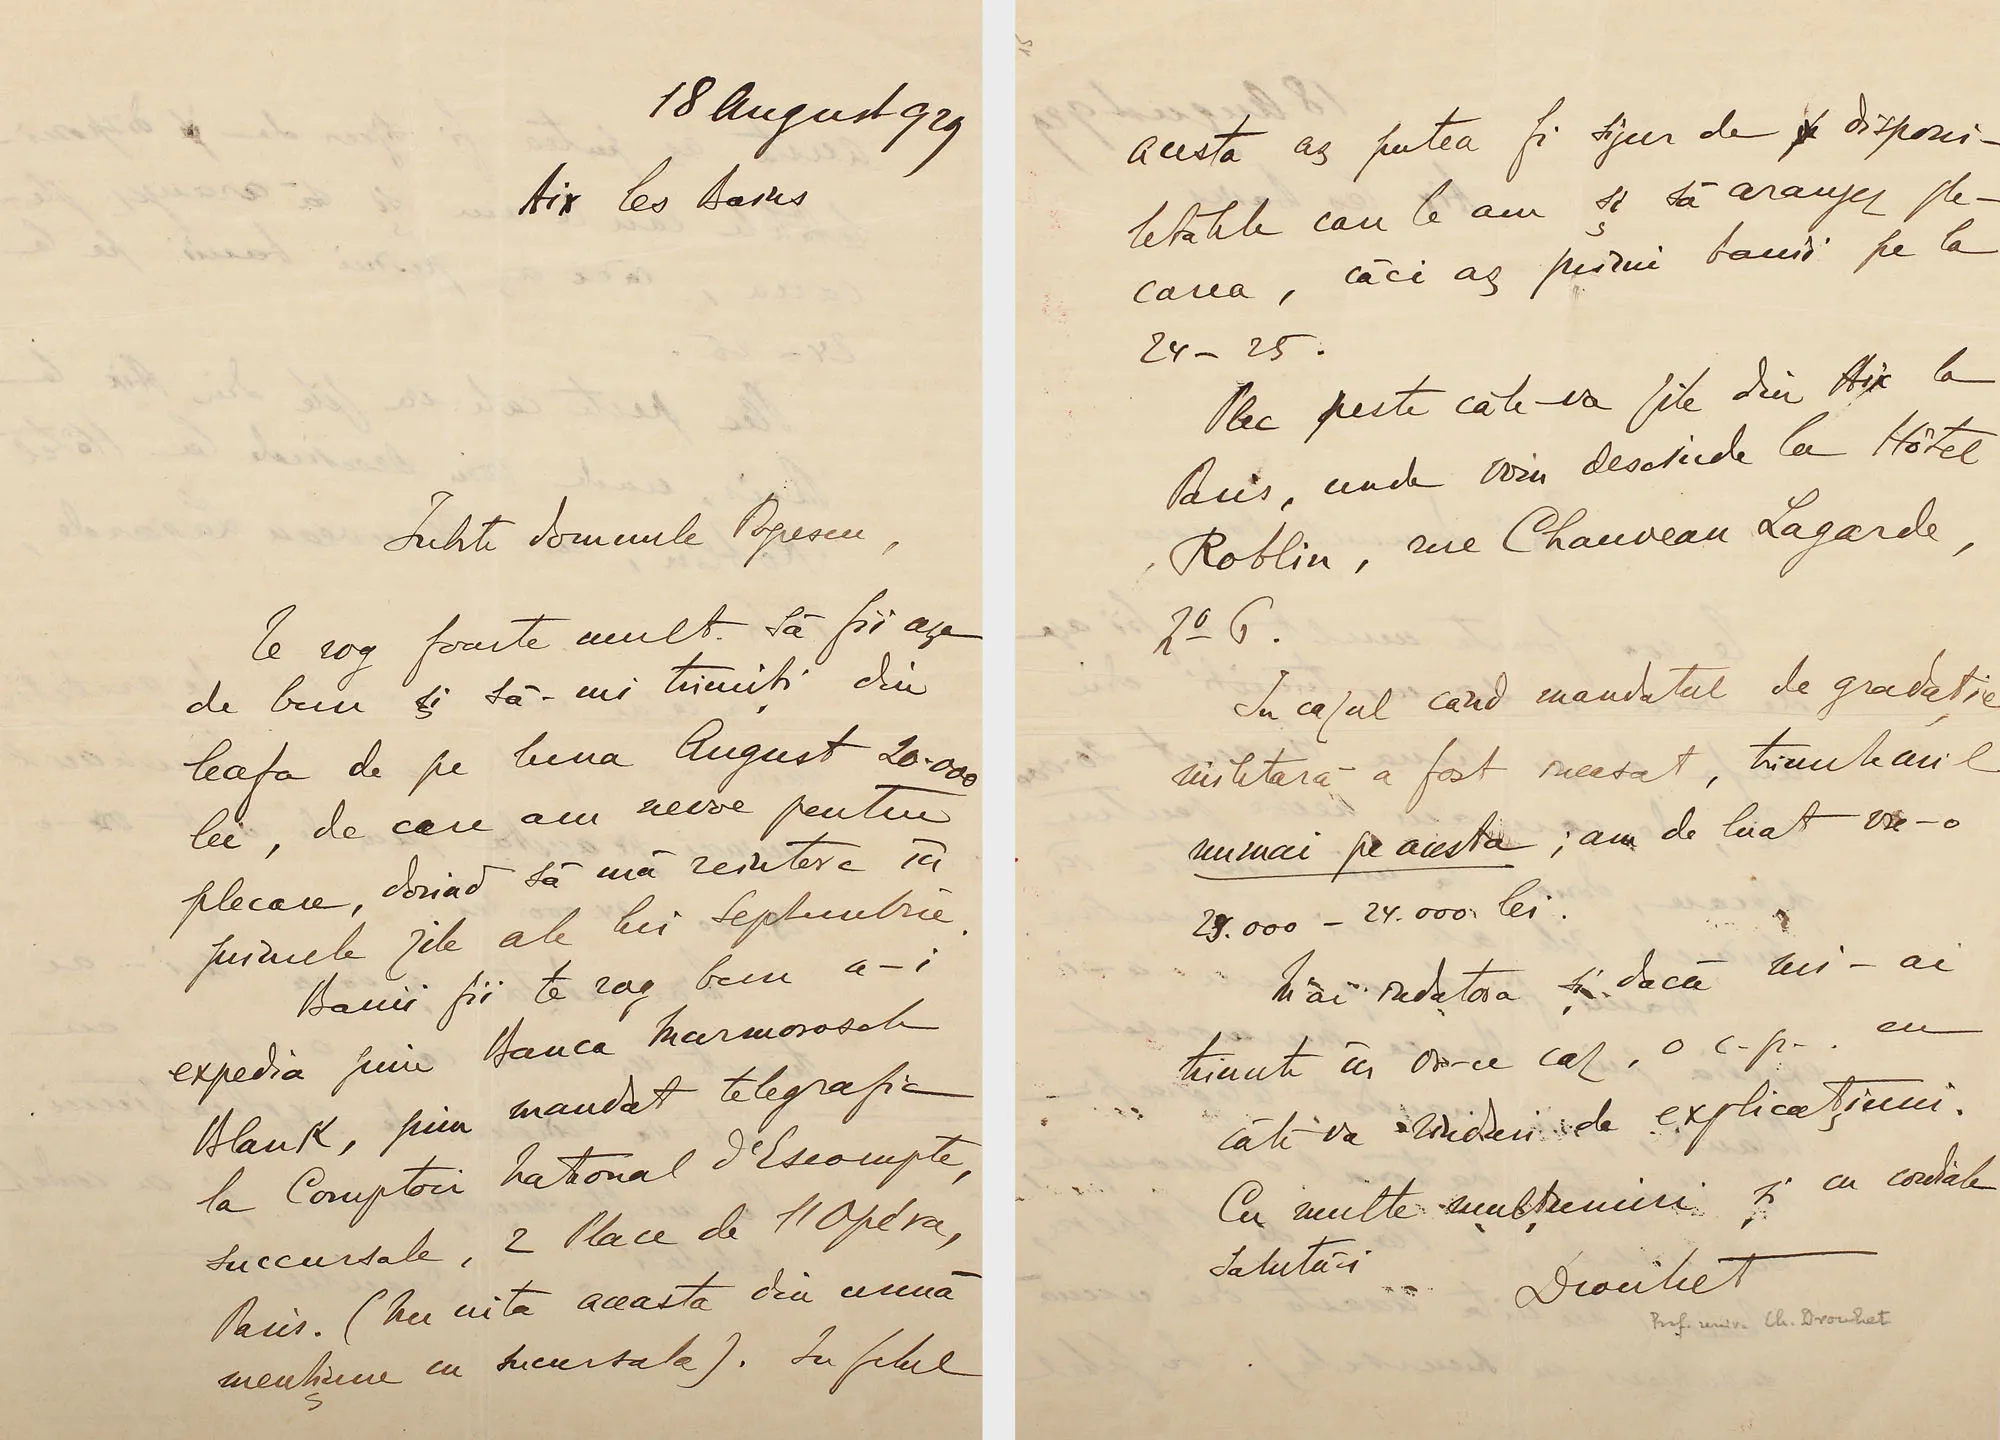 18 August 929
Aix les Bains
Iubite domnule Popescu,
Te rog foarte mult să fii aşa
de bun şi să-mi trimiţi din
leafa de pe luna August 20.000
lei, de care am nevoe pentru
plecare, dorind să mă reîntorc în
primele zile ale lui Septembrie.
Banii fii te rog bun a-i
expedia prin Banca Marmorosch
Blank, prin mandat telegrafic
la Comptoir National d'Escompte,
succursale, 2 Place de l'Opéra,
Paris. (Nu uita aceasta din urmă
menţiune cu sucursala). In felul
acesta aş putea fi sigur de disponi-
bilităţile cari le am şi să aranjez ple-
carea, căci aş primi banii pe la
24 - 25.
Plec peste câte-va zile din Aix la
Paris, unde voiu descinde la Hôtel
Roblin, rue Chauveau Lagarde,
No 6.
In cazul când mandatul de gradaţie
militară a fost incasat, trimite-mi-l
numai pe acesta; am de luat vre-o
23.000 - 24.000 lei.
M'ai indatora şi dacă mi-ai
trimite în ori-ce caz, o c.p. cu
câte-va rânduri de explicaţiuni.
Cu multe mulţumiri şi cu cordiale
salutări
Drouhet
Prof. univ. Ch. Drouhet